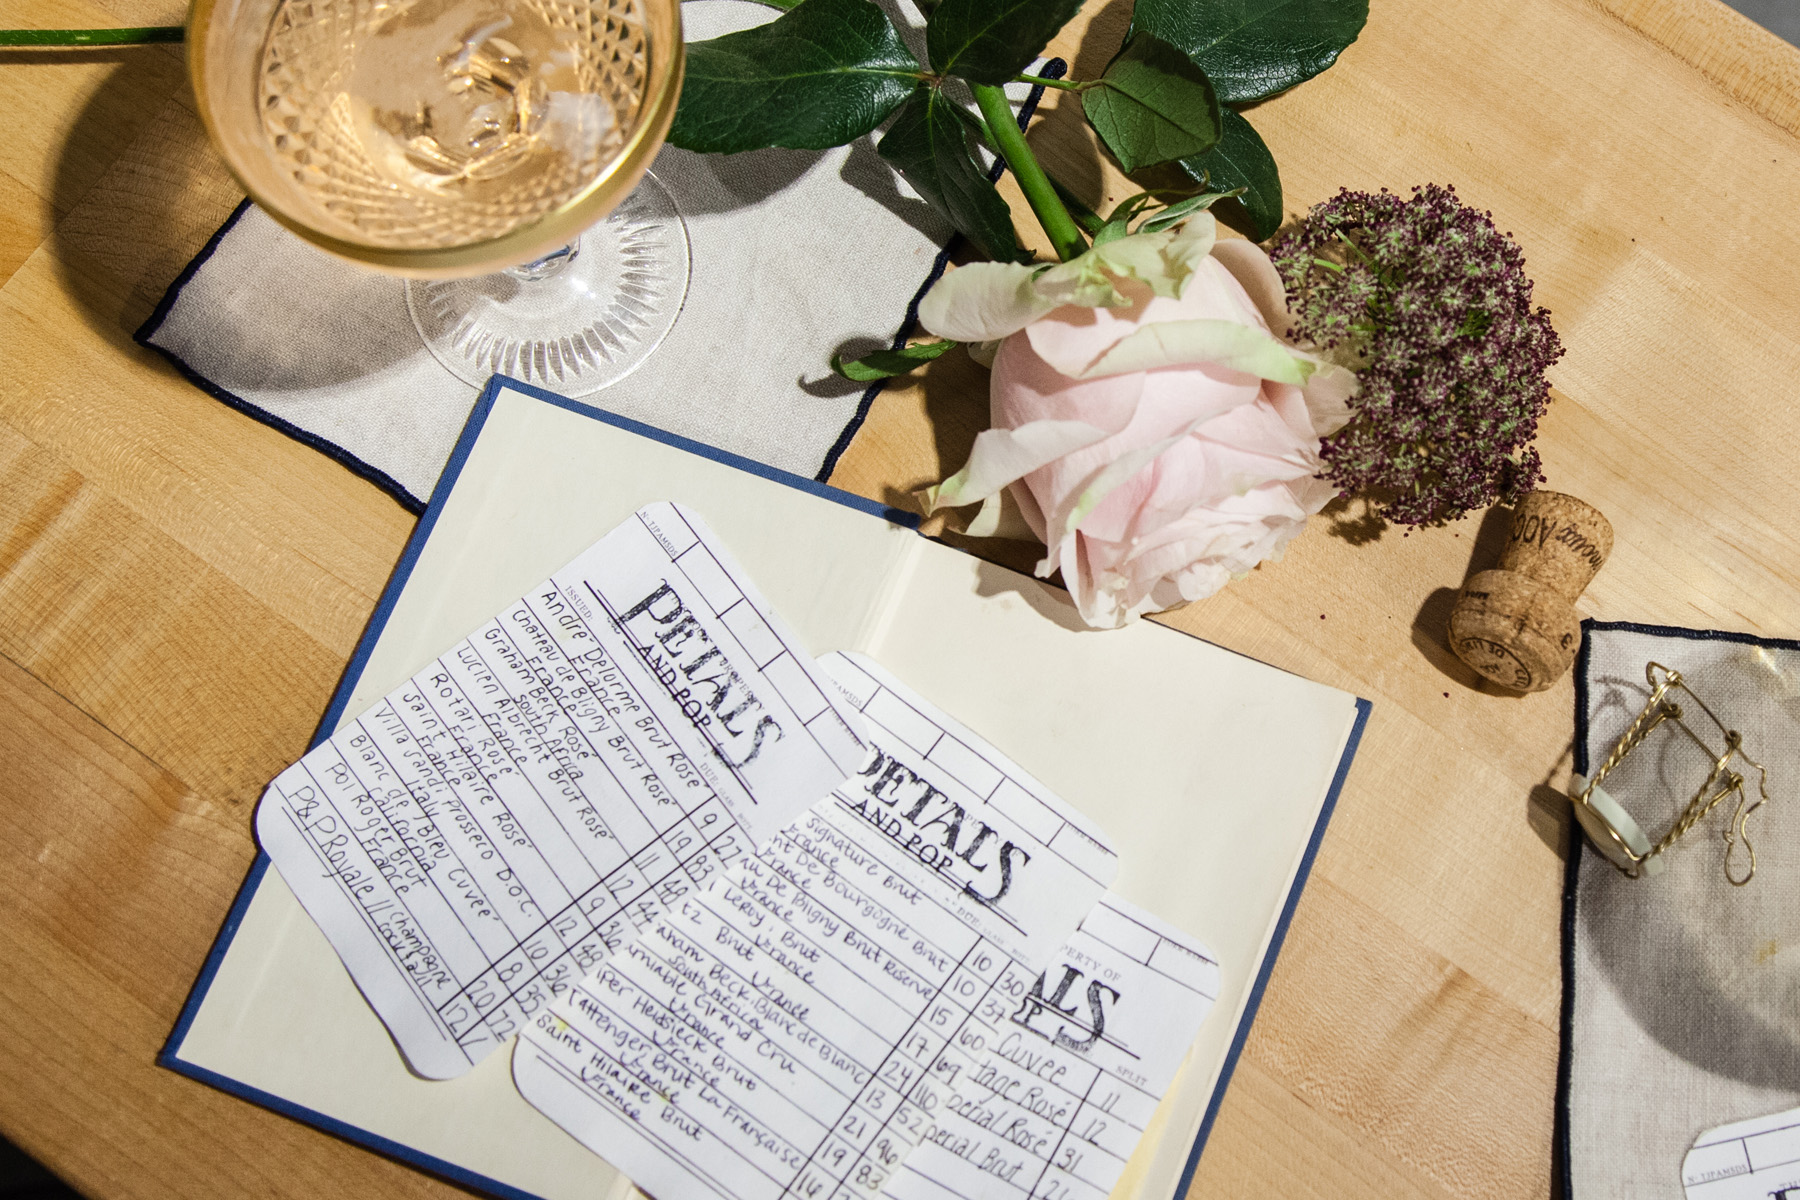 Nº TJPAMSDS
ISSUED:
PETALS
AND POP
DUE: GLASS
André Delorme Brut Rosé 9 27
France
Chateau de Bligny Brut Rosé 19 83
France
Graham Beck Rosé 11 48
South Africa
Lucien Albrecht Brut Rosé 12 44
France
Rotari Rosé 9 36
Saint Hilaire Rosé 12 48
France
Villa Sandi Prosseco D.O.C. 10 36
Italy
Bleu Cuveé 8 35
Blanc de
California
Pol Roger Brut 20 72
France
P&P Royale // Champagne 12/
Cocktail
PETALS
AND POP
DUE: GLASS
Signature Brut 10 30
France
nt De Bourgogne Brut 10 37
France
au De Bligny Brut Reserve 15 60
France
Leroy, Brut 17 69
France
tz Brut 24 110
France
aham Beck, Blanc de Blanc 13 52
South Africa
rmiable Grand Cru 21 96
France
iper Heidsieck Brut 19 83
France
Tattenger Brut La Française
France
Saint Hilaire Brut
France
PERTY OF
ALS
OP
SPLIT
Cuvee 11
tage Rosé 12
perial Rosé 31
perial Brut
AOC
Nº TJPAMSDS